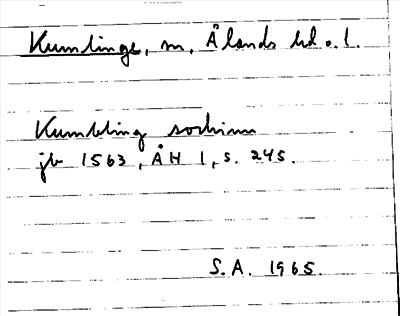 Kumlinge, m, Ålands hd o. l.
Kumbling sochnn
jb 1563, ÅH 1, s. 245.
S.A. 1965.